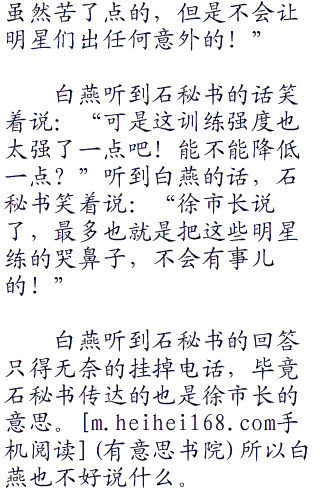 虽然苦了点的，但是不会让
明星们出任何意外的！”
白燕听到石秘书的话笑
着说：“可是这训练强度也
太强了一点吧！能不能降低
一点？”听到白燕的话，石
秘书笑着说：“徐市长说
了，最多也就是把这些明星
练的哭鼻子，不会有事儿
的！”
白燕听到石秘书的回答
只得无奈的挂掉电话，毕竟
石秘书传达的也是徐市长的
意思。[m.heihei168.com手
机阅读](有意思书院)所以白
燕也不好说什么。